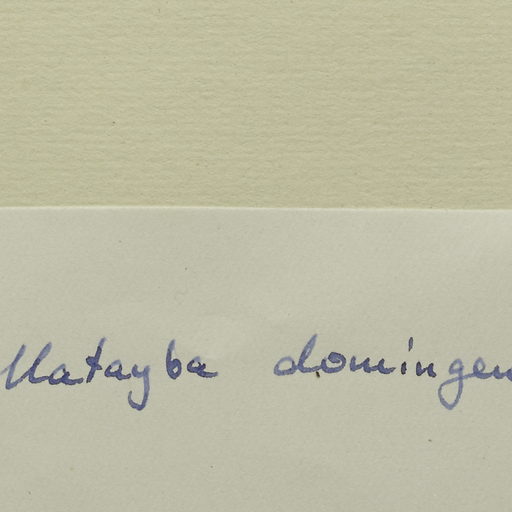 Matayba domingen